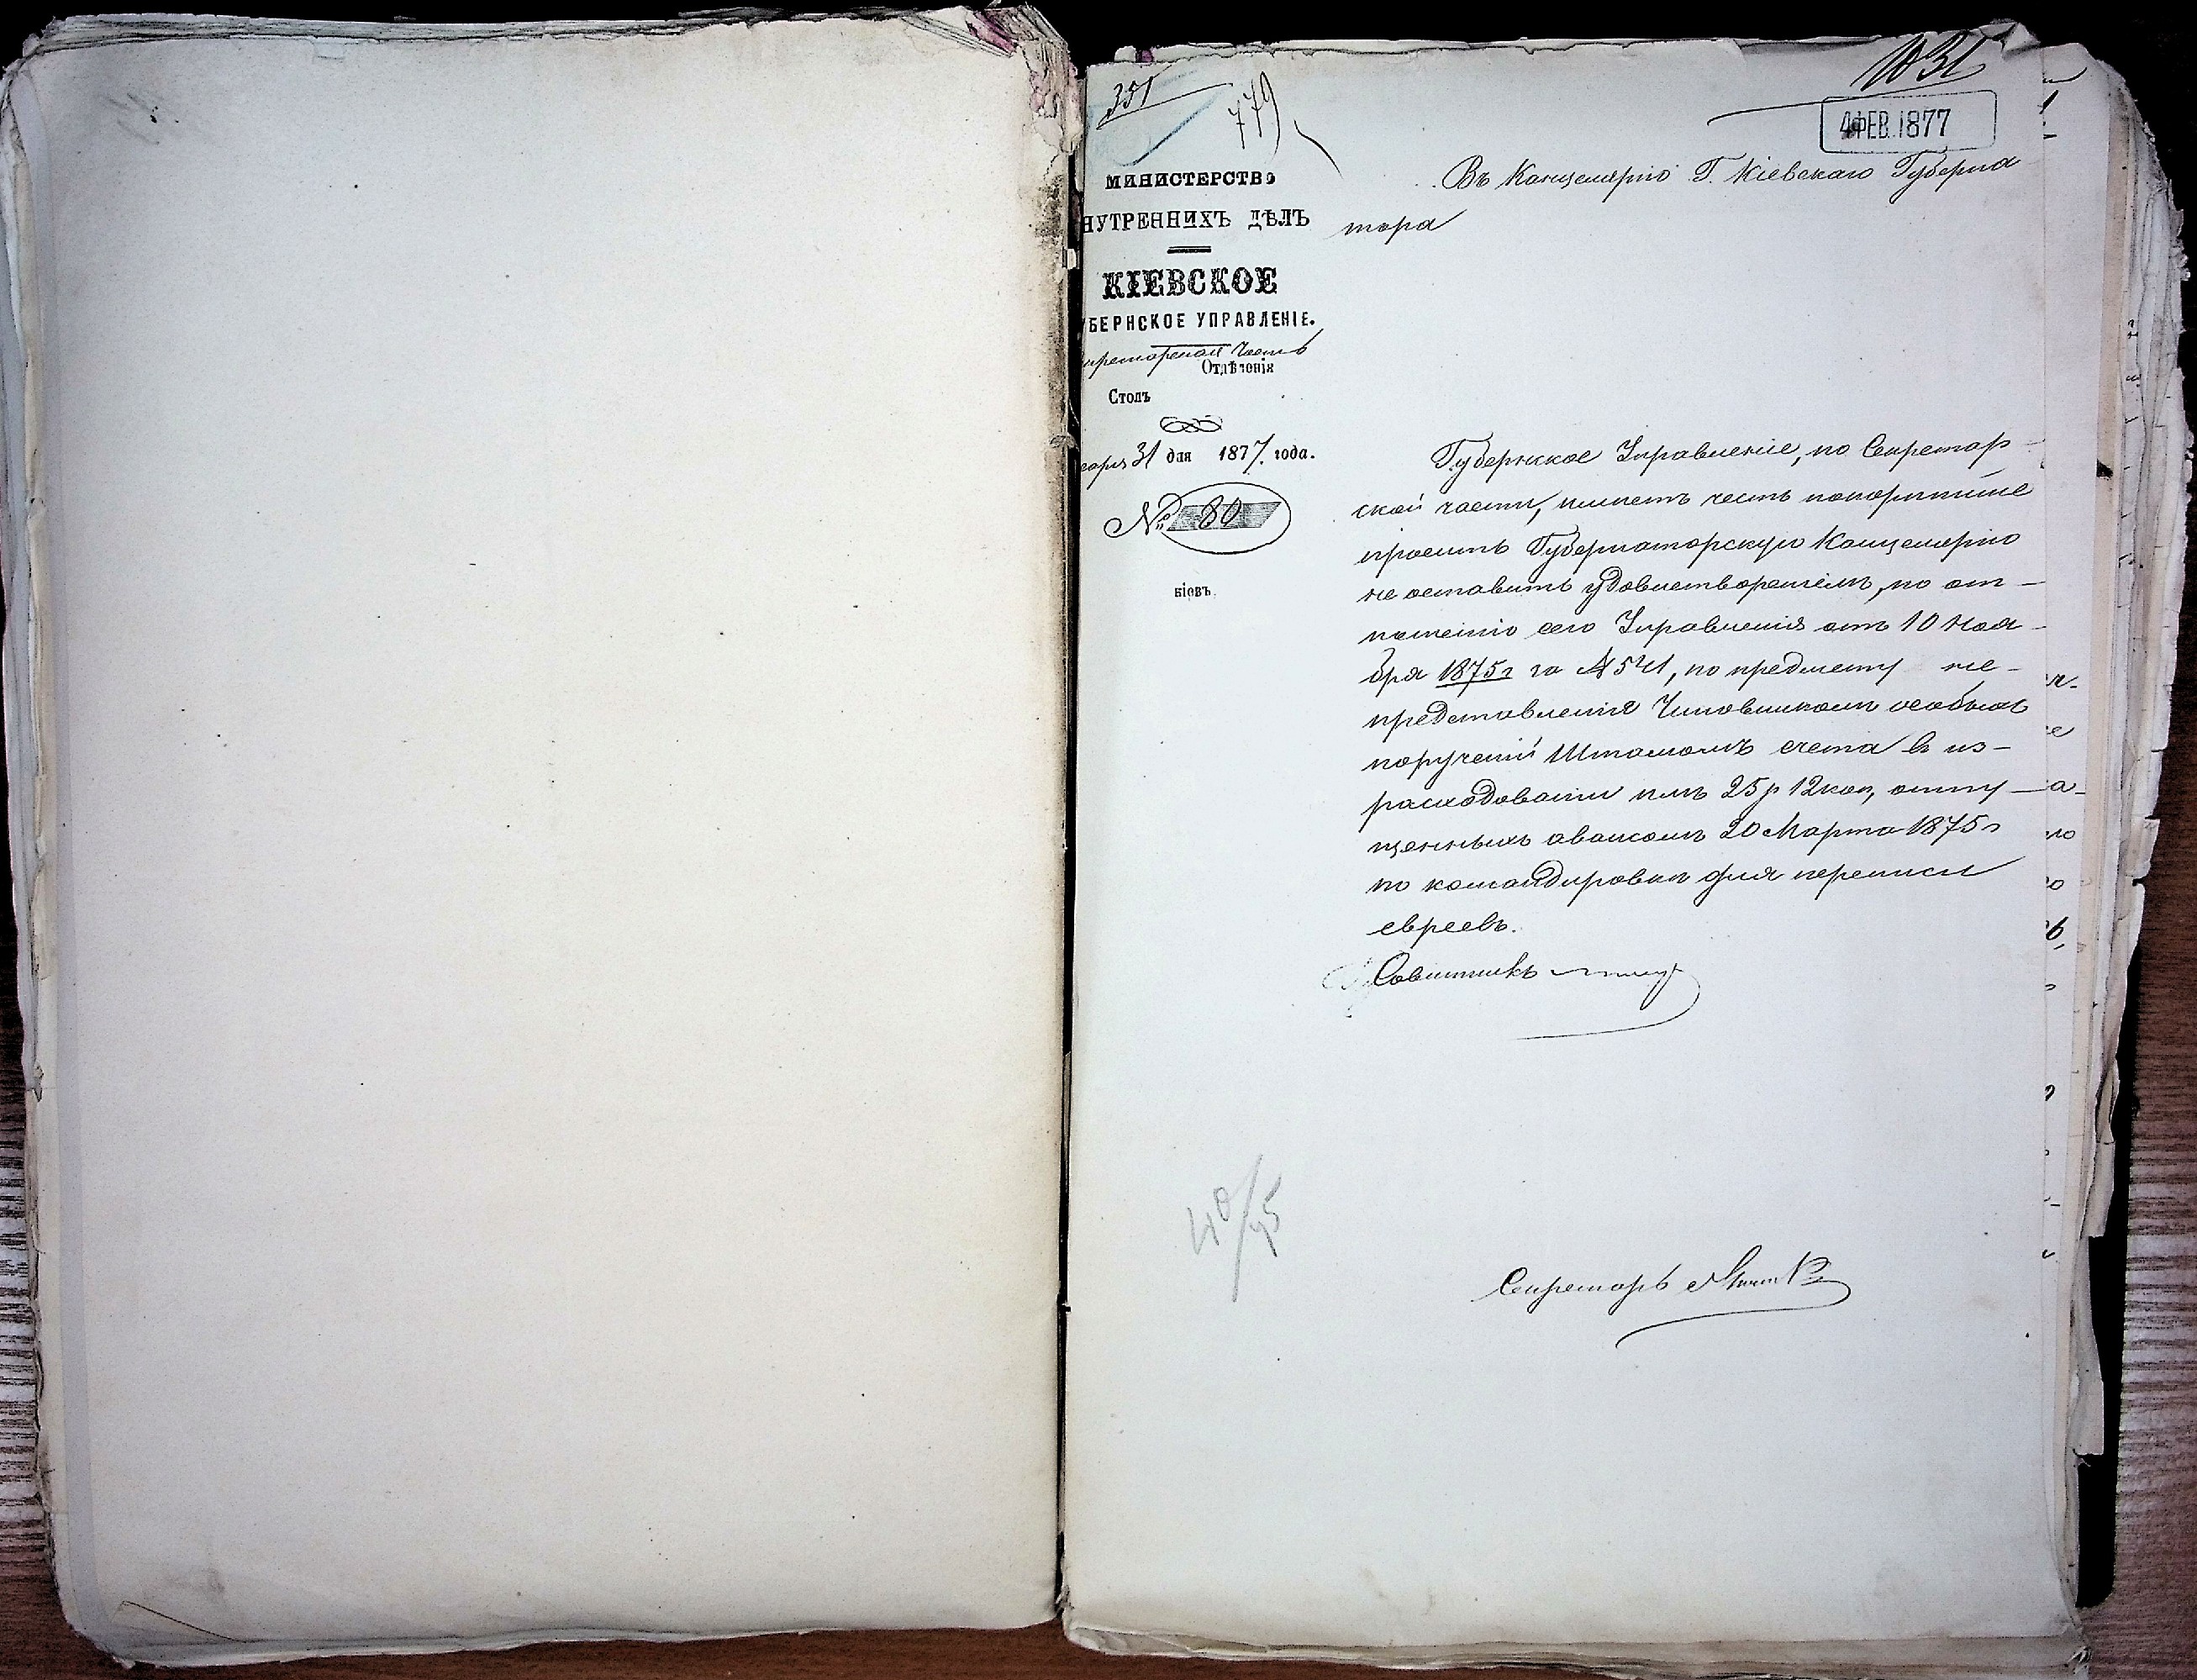 351
779
1031
4 ФЕВ. 1877
МИНИСТЕРСТВО
НУТРЕННИХЪ ДѢЛЪ
КІЕВСКОЕ
БЕРНСКОЕ УПРАВЛЕНІЕ.
кретарская Часть
Отдѣленія
Столъ
варя 31 дня 1877 года.
№ 80
Кіевъ.
Въ Канцелярію Г. Кіевскаго Губерна
тора
Губернское Управленіе, по Секретар
ской части, имѣетъ честь покорнѣйше
просить Губернаторскую Канцелярію
не оставить удовлетвореніемъ, по от-
ношенію сего Управленія отъ 10 Ноя-
бря 1875 г за № 541, по предмету не-
представленія Чиновникомъ особыхъ
порученій счета въ из-
расходованіи имъ 25 р 12 коп, отпу-
щенныхъ авансомъ 20 Марта 1875 г
по командировкѣ для переписи
евреевъ.
Совѣтникъ
Секретарь
40/75